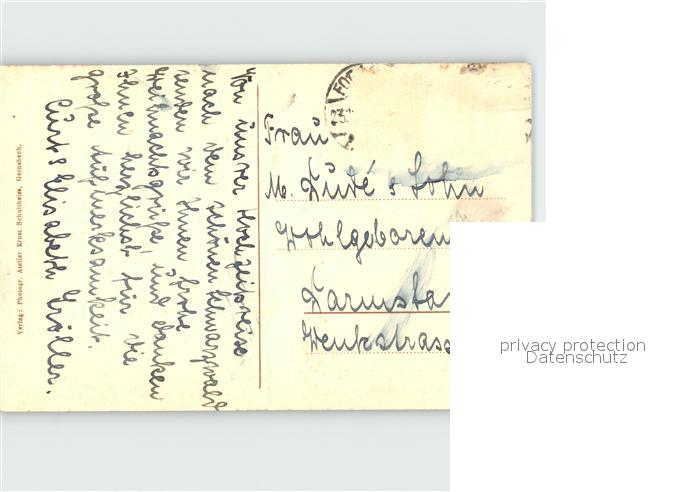 Von unsrer Hochzeitsreise
nach dem schönen Schwarzwald
senden wir Ihnen frohe
Weihnachtsgrüße und danken
Ihnen herzlichst für die
große Aufmerksamkeit.
Curt & Elisabeth
Verlag: Photogr. Atelier Ernst Schultheiss, Gernsbach.
Frau
M. & Sohn
Wohlgeboren
Darmsta
privacy protection
Datenschutz